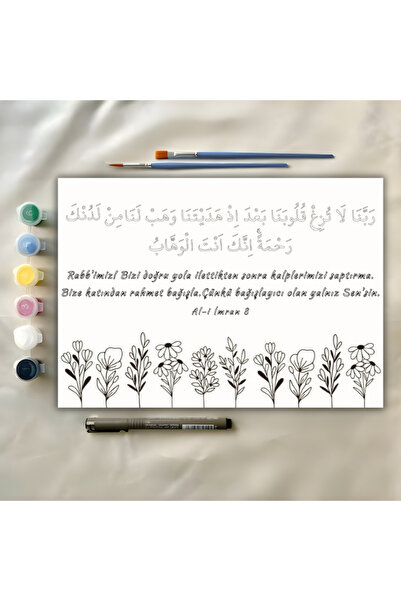 رَبَّنَا لَا تُزِغْ قُلُوبَنَا بَعْدَ اِذْ هَدَيْتَنَا وَهَبْ لَنَامِنْ لَدُنْكَ
رَحْمَةًۚ اِنَّكَ اَنْتَ الْوَهَّابُ
Rabb'imiz! Bizi doğru yola ilettikten sonra kalplerimizi saptırma.
Bize katından rahmet bağışla.Çünkü bağışlayıcı olan yalnız Sen'sin.
Al-i İmran 8